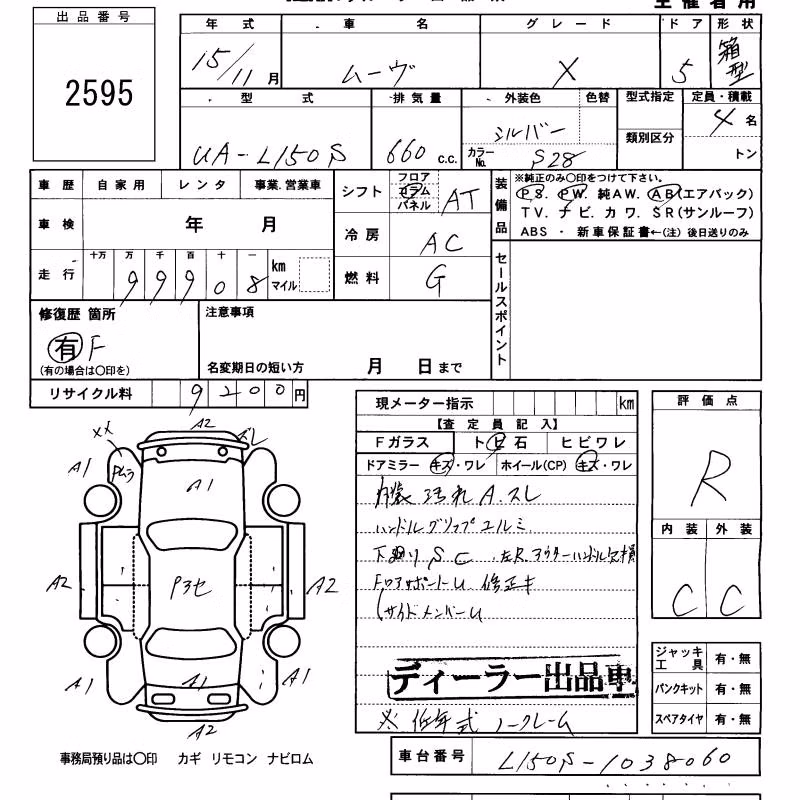 出品番号
2595
年式 車名 グレード ドア 形状
15/11月 ムーヴ X 5 箱型
型式 排気量 外装色 色替 型式指定 定員・積載
UA-L150S 660 c.c. シルバー 類別区分 4名
カラーNo. S28 トン
車歴 自家用 レンタ 事業.営業車
車検 年 月
走行 十万 万 千 百 十 一 km マイル
99908
シフト フロア コラム パネル AT
冷房 AC
燃料 G
装備品 ※純正のみ〇印をつけて下さい。
PS. PW. 純AW. AB(エアバック)
TV. ナビ. カワ. SR(サンルーフ)
ABS ・ 新車保証書←(注) 後日送りのみ
セールスポイント
修復歴 箇所
有 F
(有の場合は〇印を)
注意事項
名変期日の短い方 月 日まで
リサイクル料 9200円
現メーター指示 km
【査定員記入】
Fガラス トビ石 ヒビワレ
ドアミラー キズ・ワレ ホイール(CP) キズ・ワレ
内装 汚れ A.スレ
ハンドルグリップユルミ
下廻りSC 左R.アウターハンドル欠損
Fロアサポートu 修正キ
サイドメンバーu
ディーラー出品車
※低年式ノークレーム
評価点
R
内装 外装
C C
ジャッキ 工具 有・無
パンクキット 有・無
スペアタイヤ 有・無
A2
XX
ズレ
A1
Pムラ
A1
A1
A2
P3セ
A2
A1
A1
A1
A2
事務局預り品は〇印 カギ リモコン ナビロム
車台番号 L150S-1038060